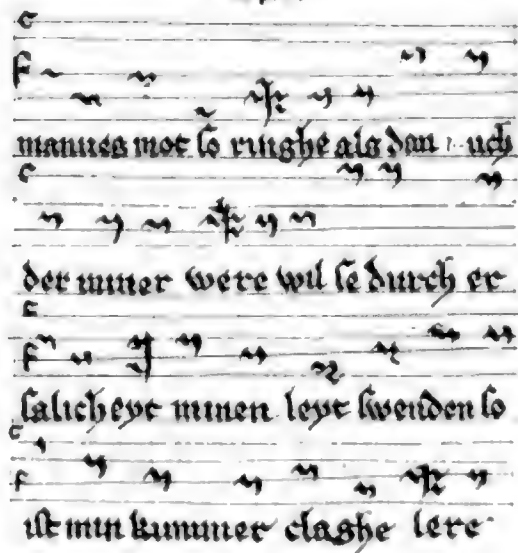 mannes mot so ringhe als dan uch
der miner were wil se durch er
salicheyt minen leyt swenden so
ist min kummer claghe lere